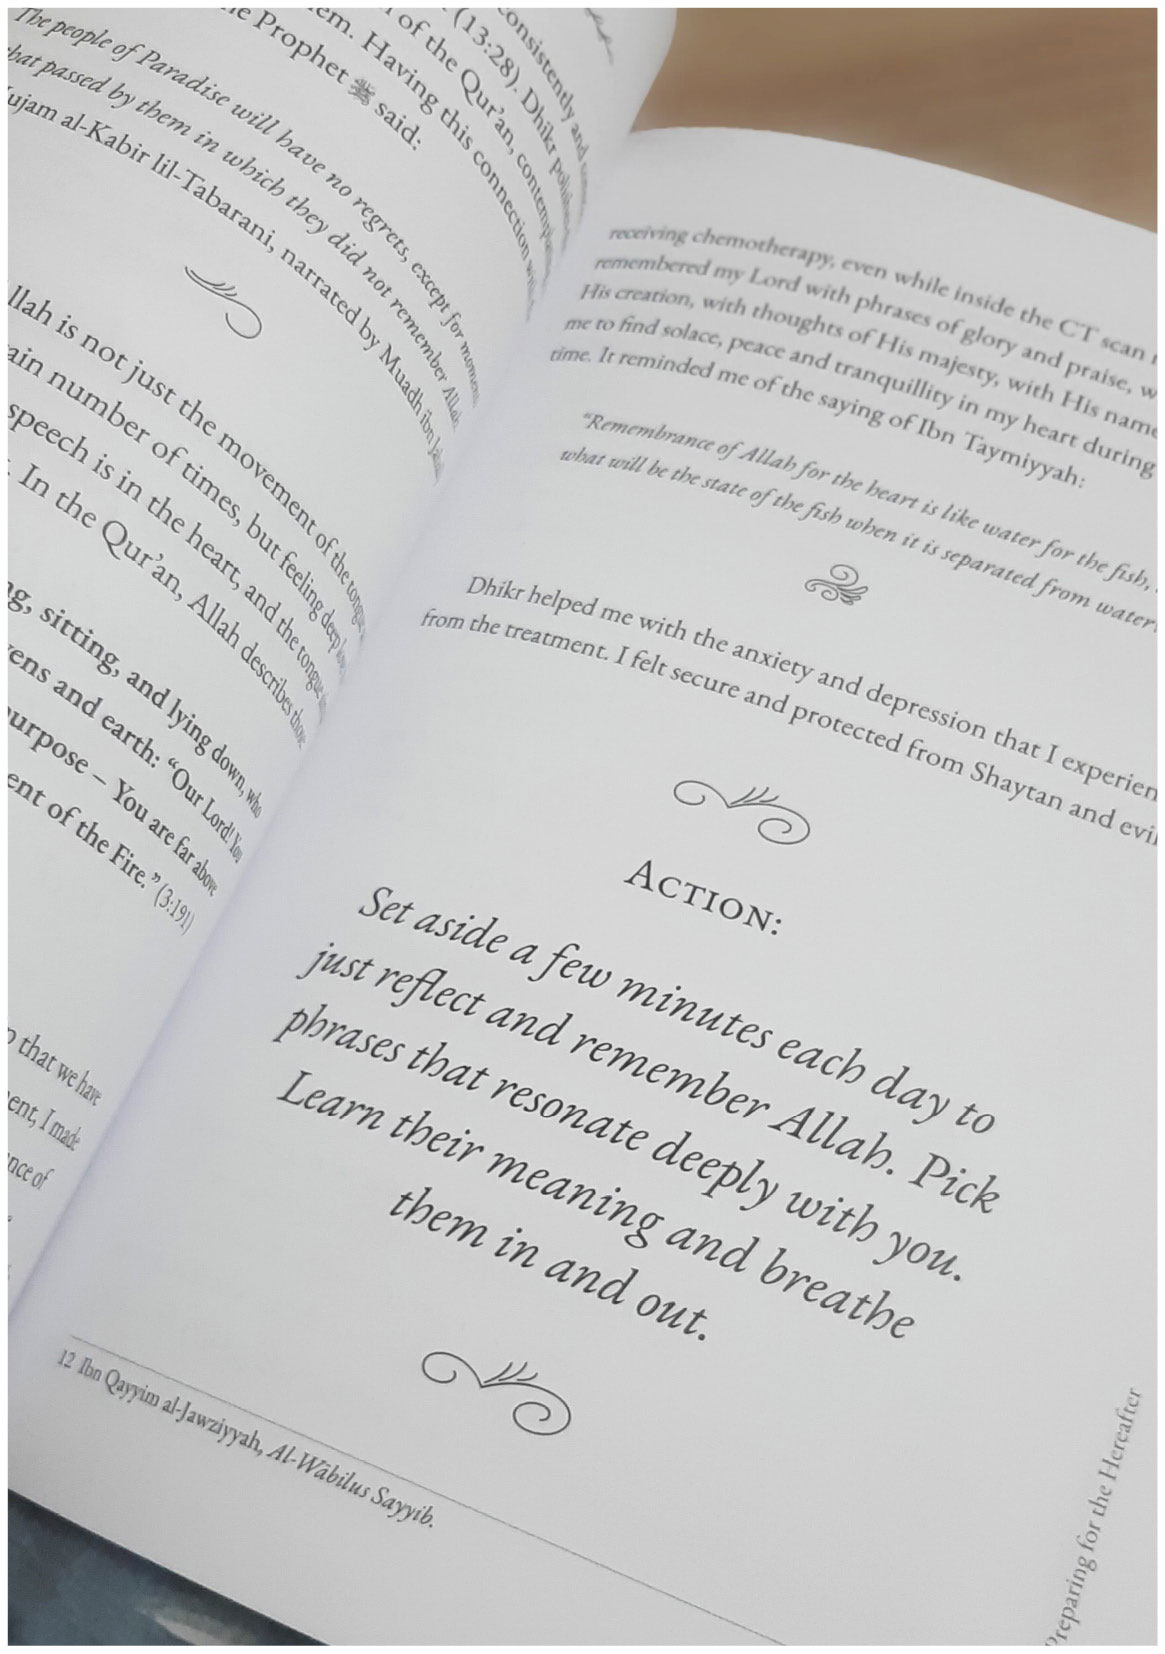 consistently and
(13:28). Dhikr polishes
of the Qur'an,
em. Having this connection with
e Prophet ﷺ said:
The people of Paradise will have no regrets, except for moments
that passed by them in which they did not remember Allah.
ujam al-Kabir lil-Tabarani, narrated by Muadh ibn Jabal
llah is not just the movement of the tongue
ain number of times, but feeling deep
speech is in the heart, and the tongue
. In the Qur'an, Allah describes those
ng, sitting, and lying down, who
vens and earth: "Our Lord! You
urpose – You are far above
ent of the Fire." (3:191)
o that we have
ent, I made
nce of
receiving chemotherapy, even while inside the CT scan
remembered my Lord with phrases of glory and praise, w
His creation, with thoughts of His majesty, with His name
me to find solace, peace and tranquillity in my heart during
time. It reminded me of the saying of Ibn Taymiyyah:
"Remembrance of Allah for the heart is like water for the fish,
what will be the state of the fish when it is separated from water
Dhikr helped me with the anxiety and depression that I experien
from the treatment. I felt secure and protected from Shaytan and evil
ACTION:
Set aside a few minutes each day to
just reflect and remember Allah. Pick
phrases that resonate deeply with you.
Learn their meaning and breathe
them in and out.
12 Ibn Qayyim al-Jawziyyah, Al-Wābilus Sayyib.
Preparing for the Hereafter